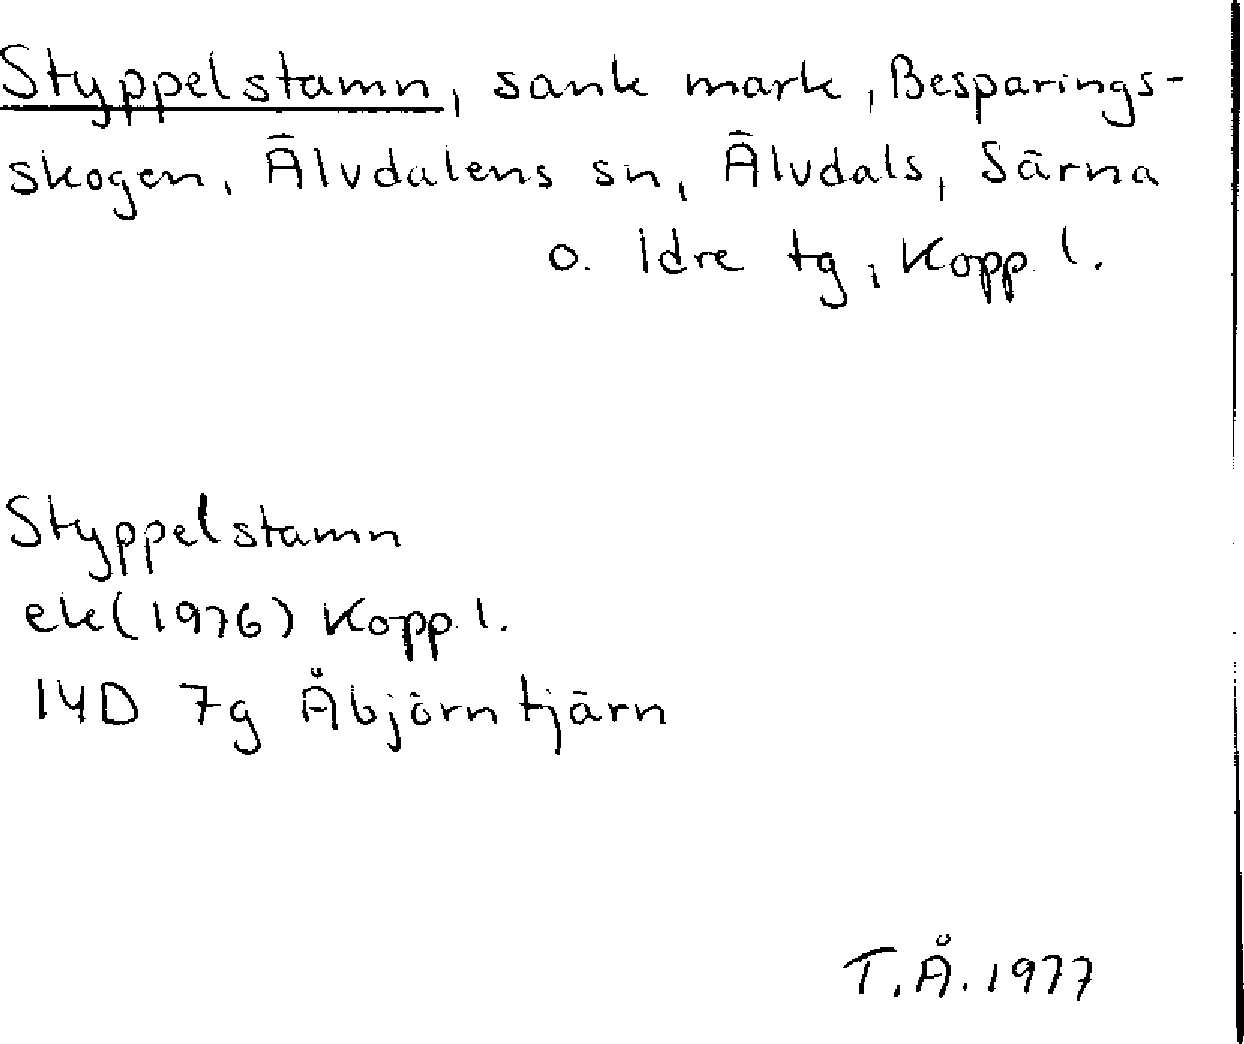 Styppelstamn, sank mark, Besparings-
skogen, Älvdalens sn, Älvdals, Särna
o. Idre tg, Kopp. l.
Styppelstamn
ek (1976) Kopp. l.
14D 7g Åbjörntjärn
T.Å. 1977